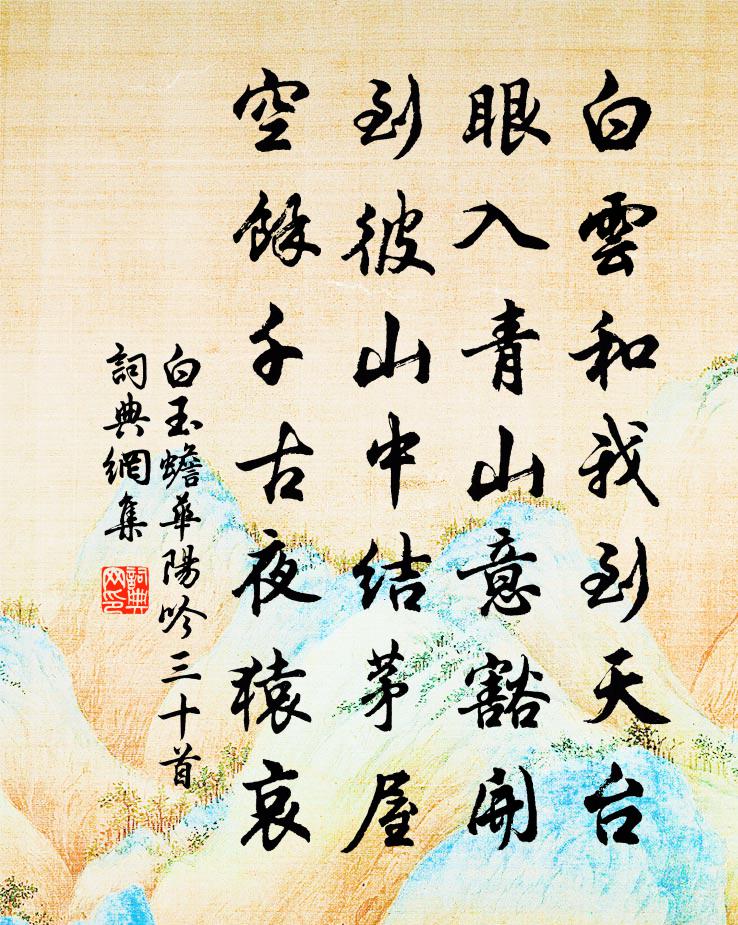 白雲和我到天台
眼入青山意豁開
到彼山中結茅屋
空餘千古夜猿哀
白玉蟾華陽吟三十首
詞典網集
詞典網印